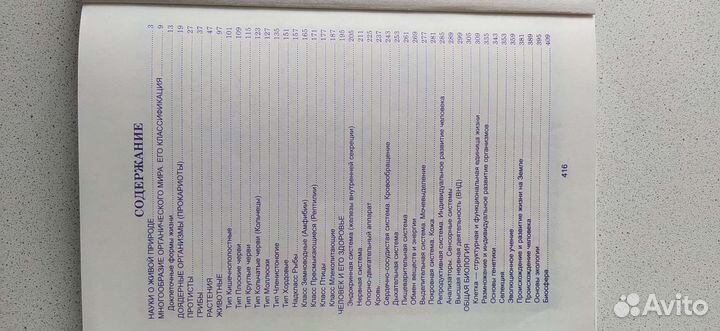 СОДЕРЖАНИЕ
НАУКИ О ЖИВОЙ ПРИРОДЕ 3
МНОГООБРАЗИЕ ОРГАНИЧЕСКОГО МИРА. ЕГО КЛАССИФИКАЦИЯ 9
Доклеточные формы жизни 13
ДОЯДЕРНЫЕ ОРГАНИЗМЫ (ПРОКАРИОТЫ) 19
ПРОТИСТЫ 27
ГРИБЫ 37
РАСТЕНИЯ 47
ЖИВОТНЫЕ 97
Тип Кишечнополостные 101
Тип Плоские черви 109
Тип Круглые черви 115
Тип Кольчатые черви (Кольчецы) 123
Тип Моллюски 127
Тип Членистоногие 135
Тип Хордовые 151
Надкласс Рыбы 157
Класс Земноводные (Амфибии) 165
Класс Пресмыкающиеся (Рептилии) 171
Класс Птицы 177
Класс Млекопитающие 187
ЧЕЛОВЕК И ЕГО ЗДОРОВЬЕ 195
Эндокринная система (железы внутренней секреции) 205
Нервная система 211
Опорно-двигательный аппарат 225
Кровь 237
Сердечно-сосудистая система. Кровообращение 243
Дыхательная система 253
Пищеварительная система 261
Обмен веществ и энергии 269
Выделительная система. Мочевыделение 277
Покровная система. Кожа 281
Репродуктивная система. Индивидуальное развитие человека 285
Анализаторы. Сенсорные системы 289
Высшая нервная деятельность (ВНД) 299
ОБЩАЯ БИОЛОГИЯ 305
Клетка — структурная и функциональная единица жизни 309
Размножение и индивидуальное развитие организмов 335
Основы генетики 343
Селекция 353
Эволюционное учение 359
Происхождение и развитие жизни на Земле 381
Происхождение человека 389
Основы экологии 395
Биосфера 409
416
Avito